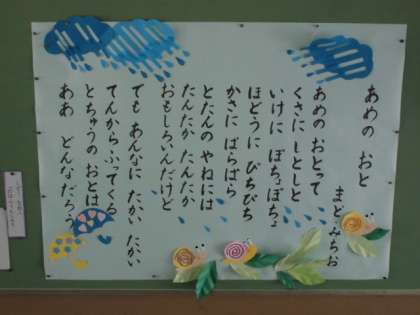 あめの おと
まど・みちお
あめの おとって
くさに しとしと
いけに ぽちょぽちょ
ほどうに ぴちぴち
かさに ぱらぱら
とたんの やねには
たんたか たんたか
おもしろいんだけど
でも あんなに たかい たかい
てんからふってくる
とちゅうの おとは
ああ どんなだろう